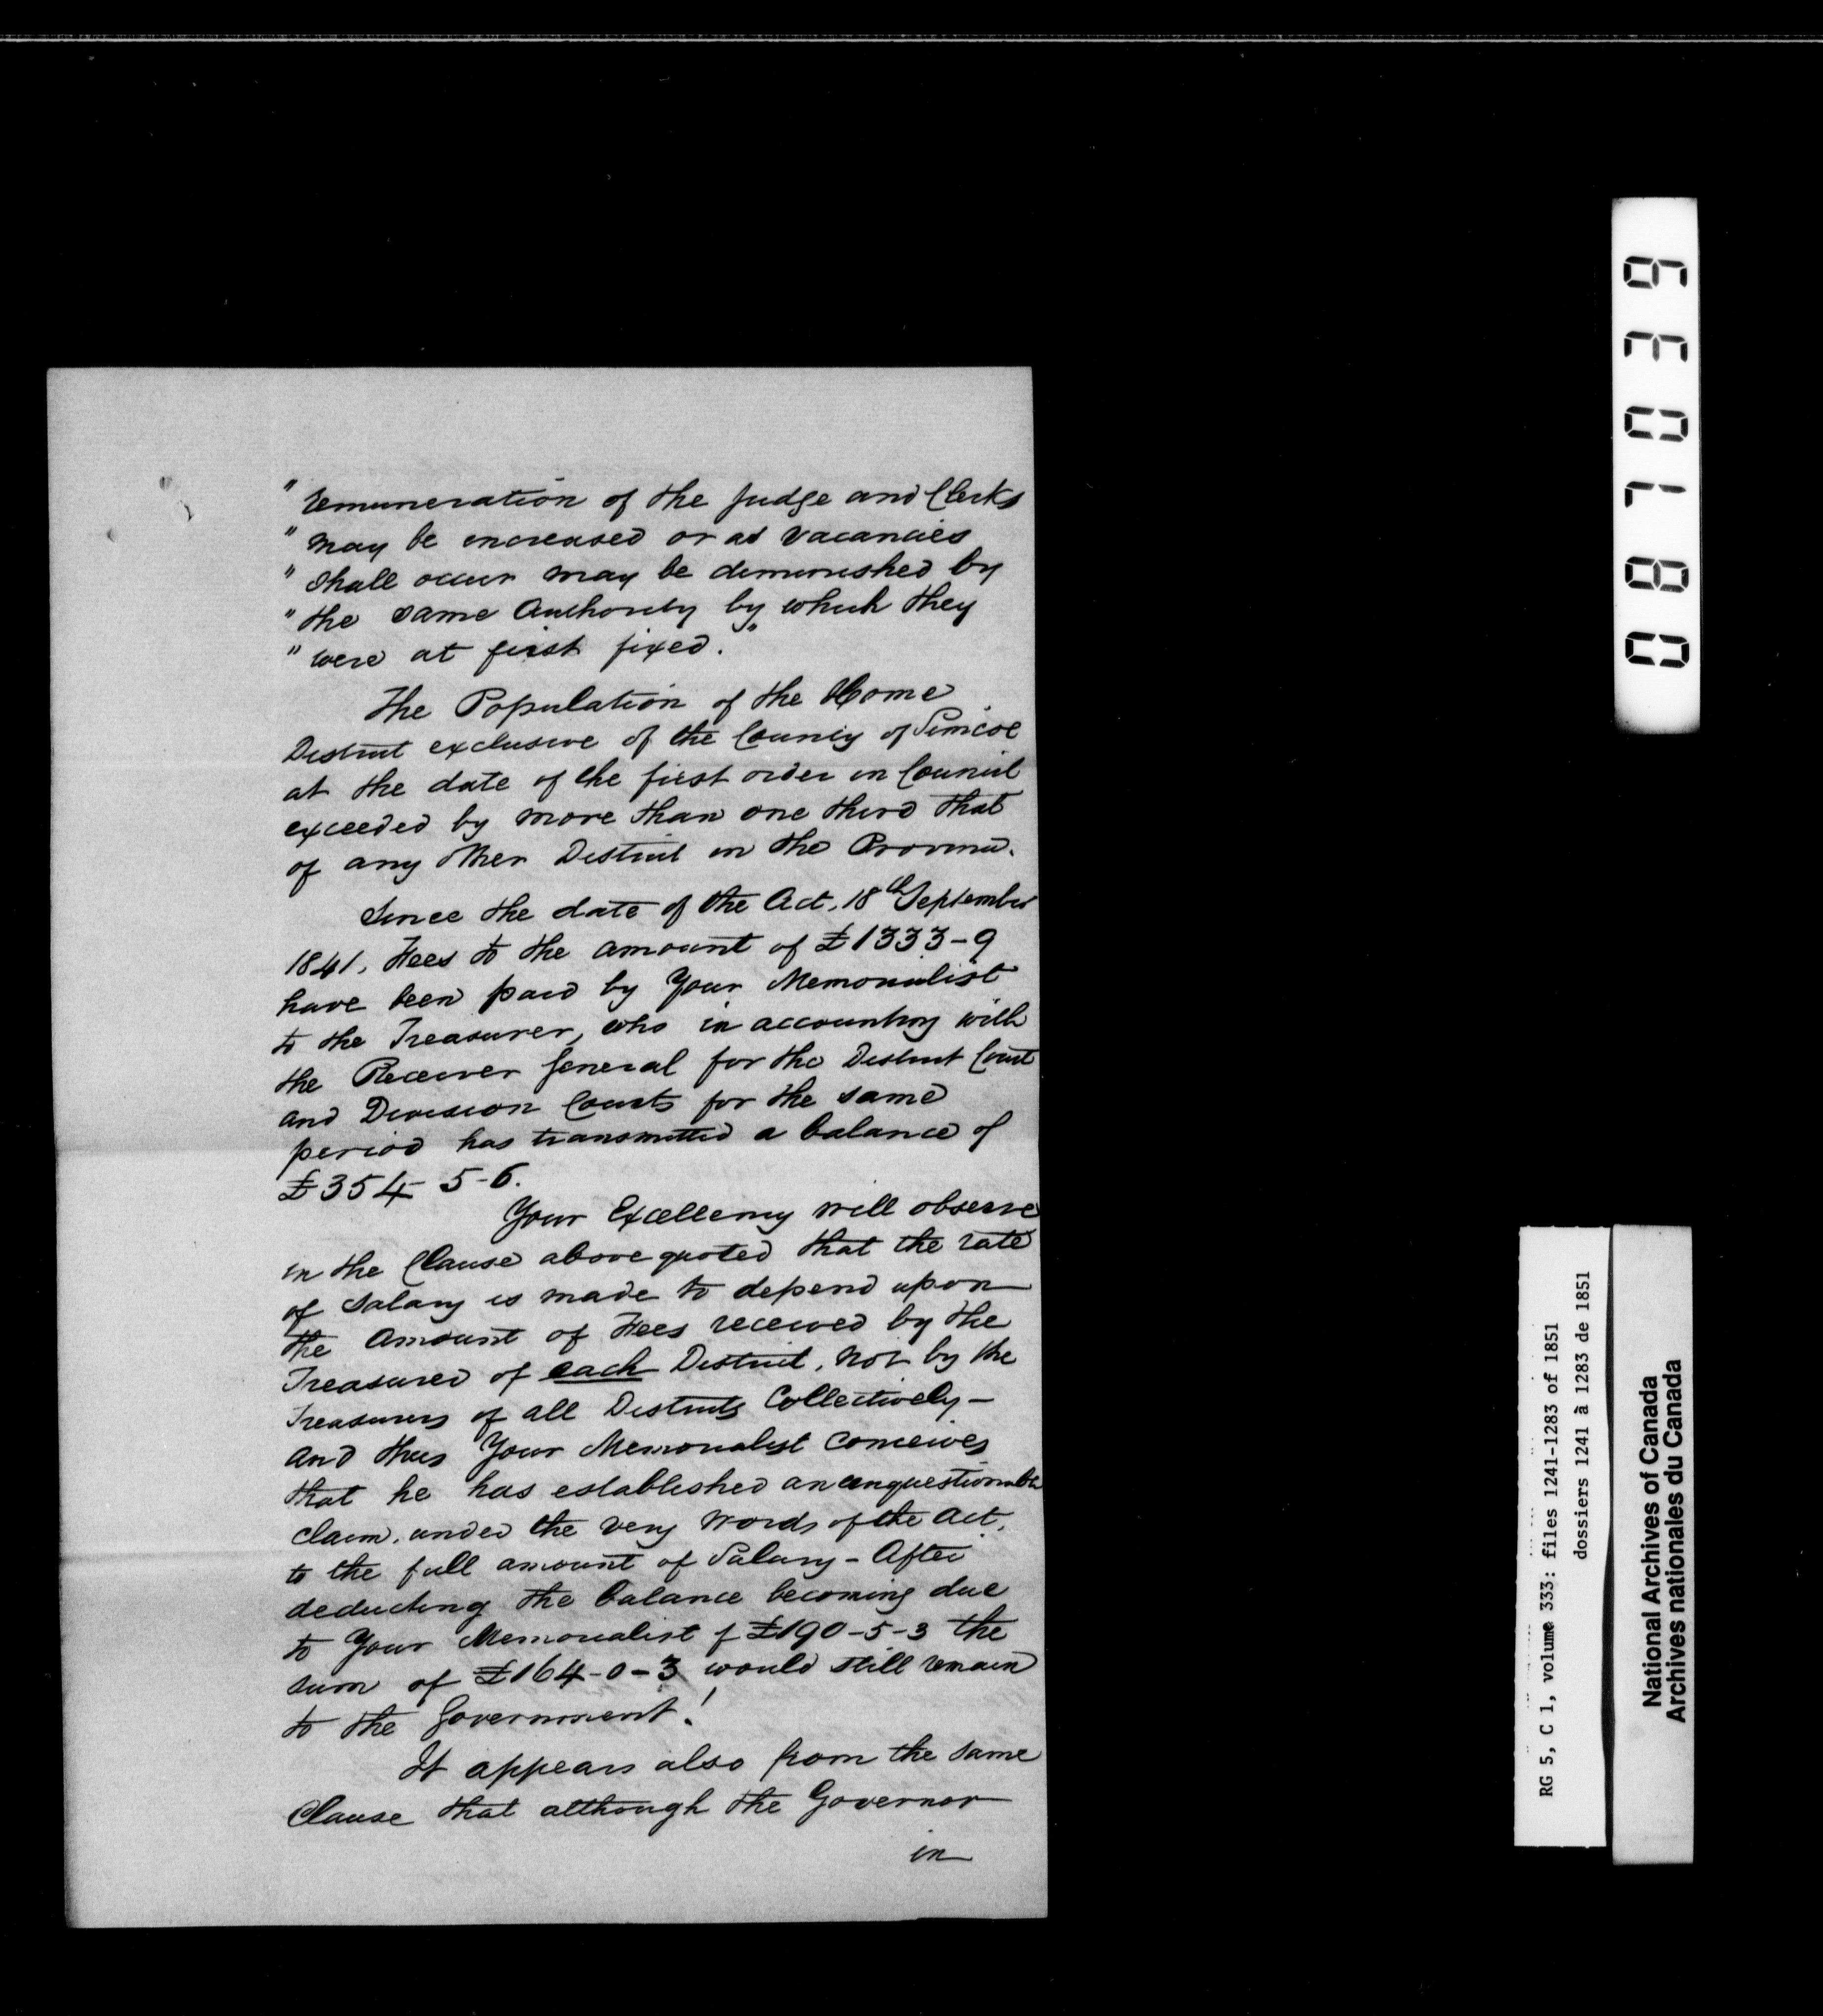 " remuneration of the Judge and Clerks
" may be increased or as vacancies
" shall occur may be diminished by
" the same Authority by which they
" were at first fixed."
The Population of the Home
District exclusive of the County of Simcoe
at the date of the first order in Council
exceeded by more than one third that
of any other District in the Province.
Since the date of the Act, 18th September
1841, Fees to the amount of £1333-9
have been paid by Your Memorialist
to the Treasurer, who in accounting with
the Receiver General for the District Court
and Division Courts for the same
period has transmitted a balance of
£354-5-6.
Your Excellency will observe
in the Clause above quoted that the rate
of Salary is made to depend upon
the Amount of Fees received by the
Treasurer of each District, not by the
Treasurers of all Districts Collectively -
and thus Your Memorialist conceives
that he has established an unquestionable
claim, under the very words of the Act,
to the full amount of Salary - After
deducting the balance becoming due
to Your Memorialist of £190-5-3 the
sum of £164-0-3 would still remain
to the Government!
It appears also from the same
Clause that although the Governor
in
087039
RG 5, C 1, volume 333: files 1241-1283 of 1851
dossiers 1241 à 1283 de 1851
National Archives of Canada
Archives nationales du Canada